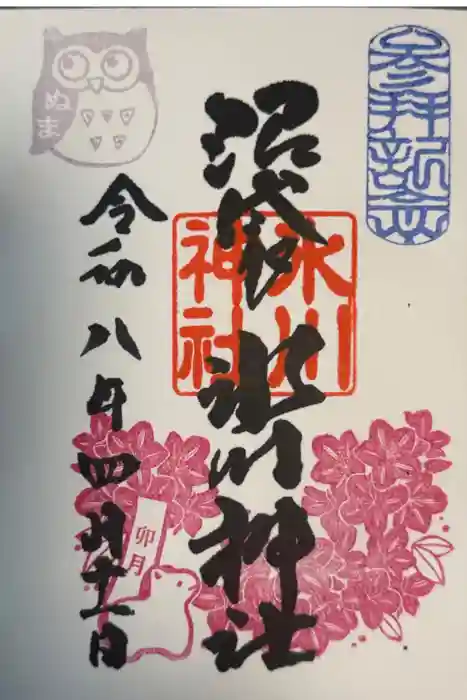 参拝記念
沼袋 氷川神社
氷川
神社
ぬま
令和八年四月十一日
卯月